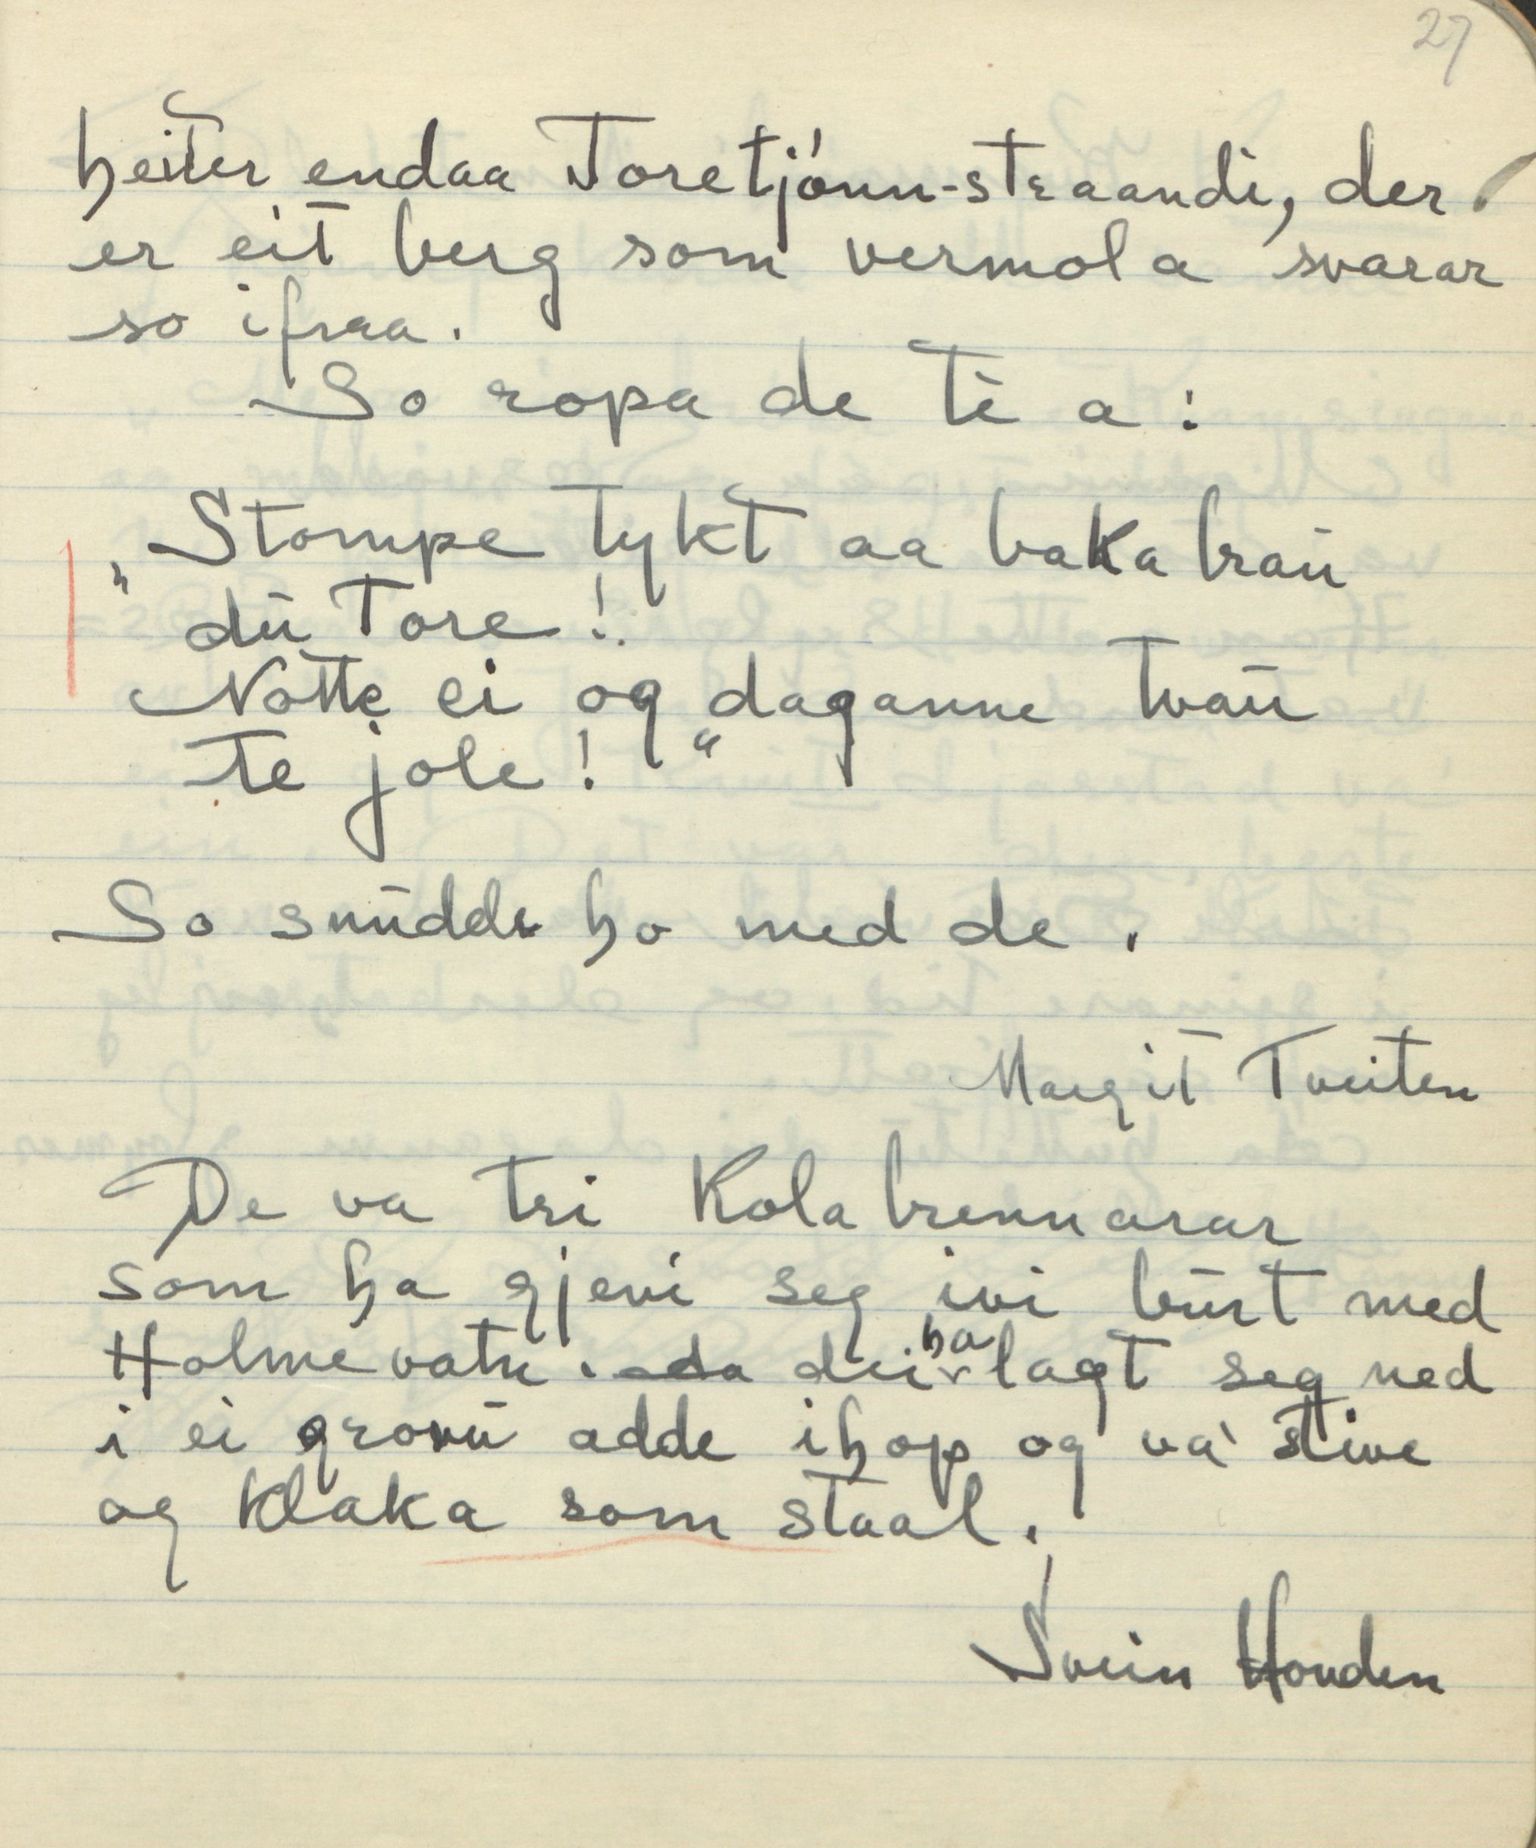 27
heiter endaa Toretjónn-straandi, der
er eit berg som vermola svarar
so ifraa.
So ropa de te a:
"Stompe tykt aa baka brau
du Tore!
Notte ei og daganne tvau
te jole!"
So snudde ho med de.
Margit Tveiten
De va tri Kolabrennarar
som ha gjevi seg ivi burt med
Holmevatn. da dei ha lagt seg ned
i ei grovu adde ihop og va' stive
og klaka som staal.
Svein Hovden